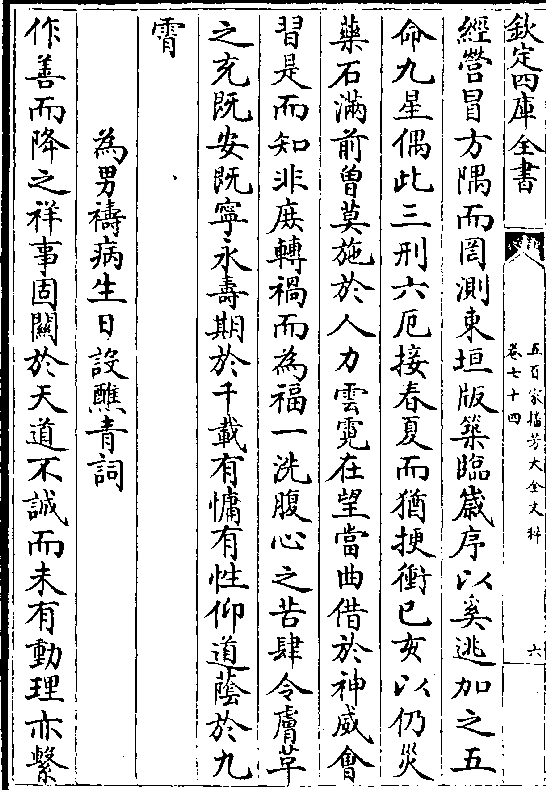 欽定四庫全書
五百家播芳大全文粹
卷七十四
六
經營冒方隅而罔測東垣版築臨歲序以奚逃加之五
命九星偶此三刑六厄接春夏而猶挭衝巳亥以仍災
藥石滿前曾莫施於人力雲霓在望當曲借於神威會
習是而知非庶轉禍而為福一洗腹心之苦肆令膚革
之充既安既寧永壽期於千載有慵有性仰道蔭於九
霄
為男禱病生日設醮青詞
作善而降之祥事固關於天道不誠而未有動理亦繫